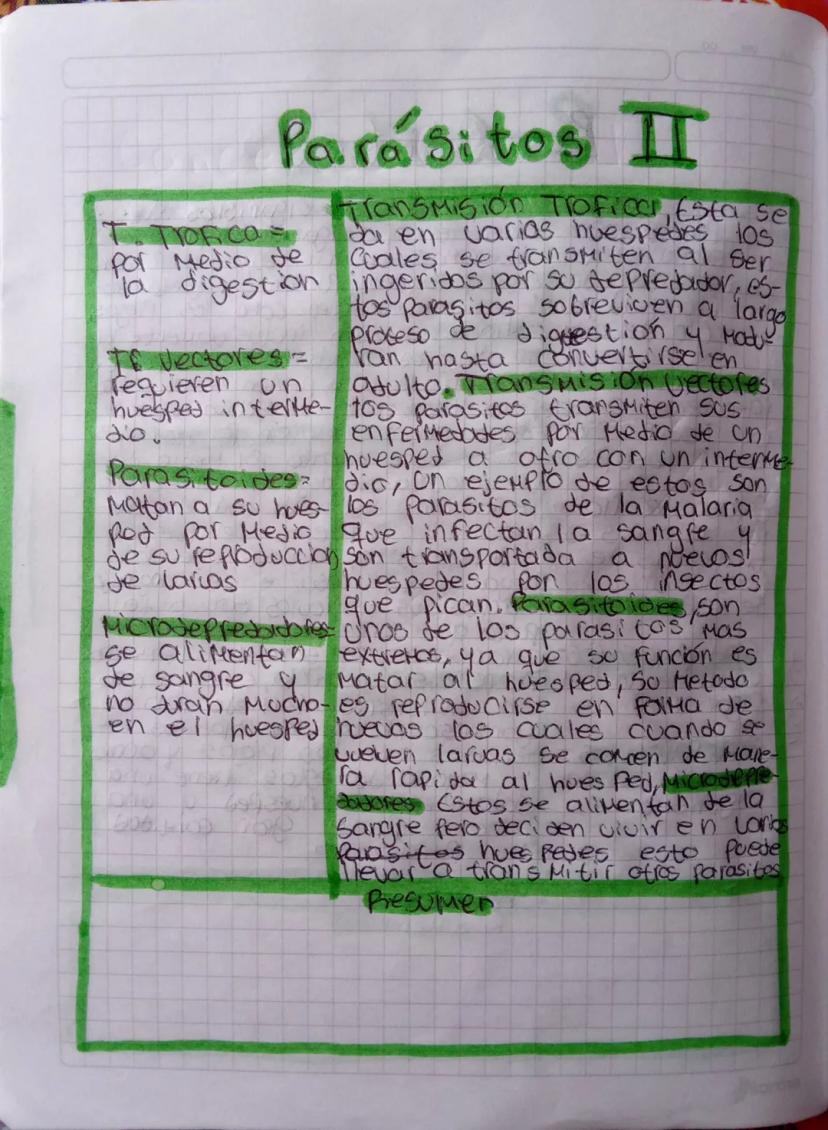 Parásitos II
T. Trofica =
por Medio de
la digestion
T. Vectores =
requieren un
huesped interme-
dio.
Parasitoides=
Matan a su hues-
ped por Medio
de su reproduccion
de larvas
Microdepredadores=
se alimentan
de sangre y
no duran mucho
en el huesped
Transmisión Trofica, Esta se
da en varios huespedes los
cuales se transmiten al ser
ingeridos por su depredador, es-
tos parasitos sobreviven a largo
proceso de digestión y Madu-
ran hasta convertirse en
adulto. Transmisión Vectores
los parasitos transmiten sus
enfermedades por Medio de un
huesped a otro con un interme-
dio, un ejemplo de estos son
los parasitos de la Malaria
que infectan la sangre y
son transportada a nuevos
huespedes por los insectos
que pican. Parasitoides, son
unos de los parasitos mas
extremos, ya que su función es
Matar al huesped, su Metodo
es reproducirse en forma de
huevos los cuales cuando se
vuelven larvas se comen de mane-
ra rapida al huesped, Microdepre-
dadores Estos se alimentan de la
sangre pero deciden vivir en varios
parasitos huespedes esto puede
llevar a transmitir otros parasitos
Resumen